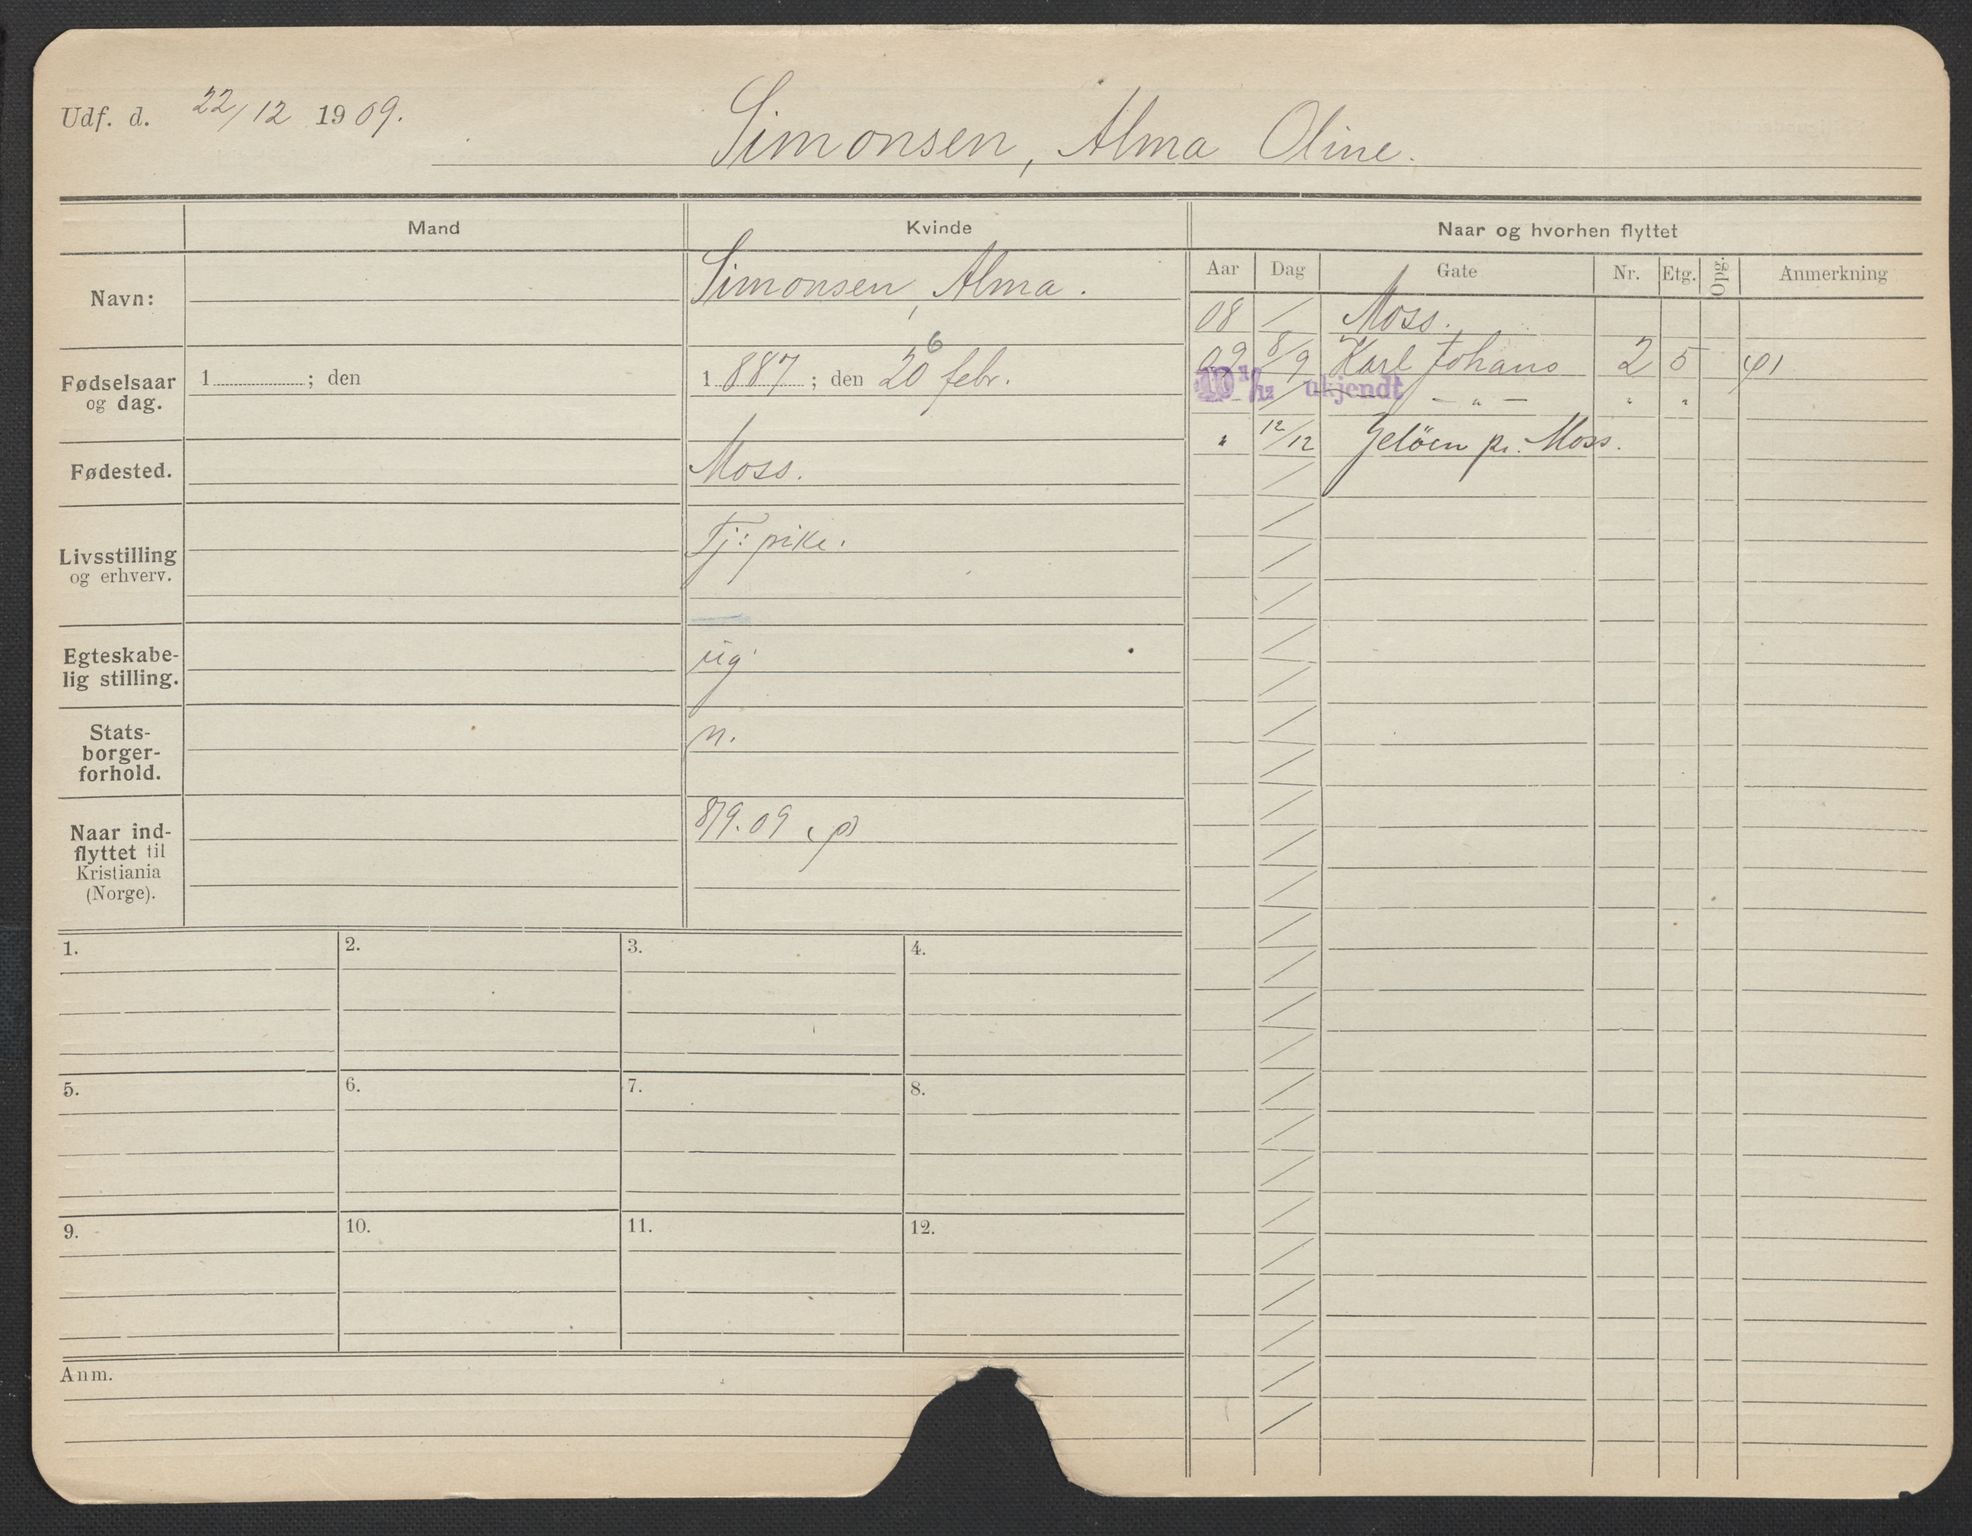 Udf. d. 22/12 1909.
Simonsen, Alma Oline.
Mand
Kvinde
Naar og hvorhen flyttet
Aar Dag Gate Nr. Etg. Opg. Anmerkning
Navn:
Simonsen, Alma.
Fødselsaar og dag.
1 ; den
1887 ; den 20 febr.
6
Fødested.
Moss.
Livsstilling og erhverv.
Tj: pike.
Egteskabe-
lig stilling.
ug
Stats-
borger-
forhold.
n.
Naar ind-
flyttet til
Kristiania
(Norge).
8/9.09 (p)
08 / Moss.
09 8/9 Karl Johans 2 5
10 1/12 ukjendt — " — " "
" 12/12 Jeløen pr. Moss.
1. 2. 3. 4.
5. 6. 7. 8.
9. 10. 11. 12.
Anm.